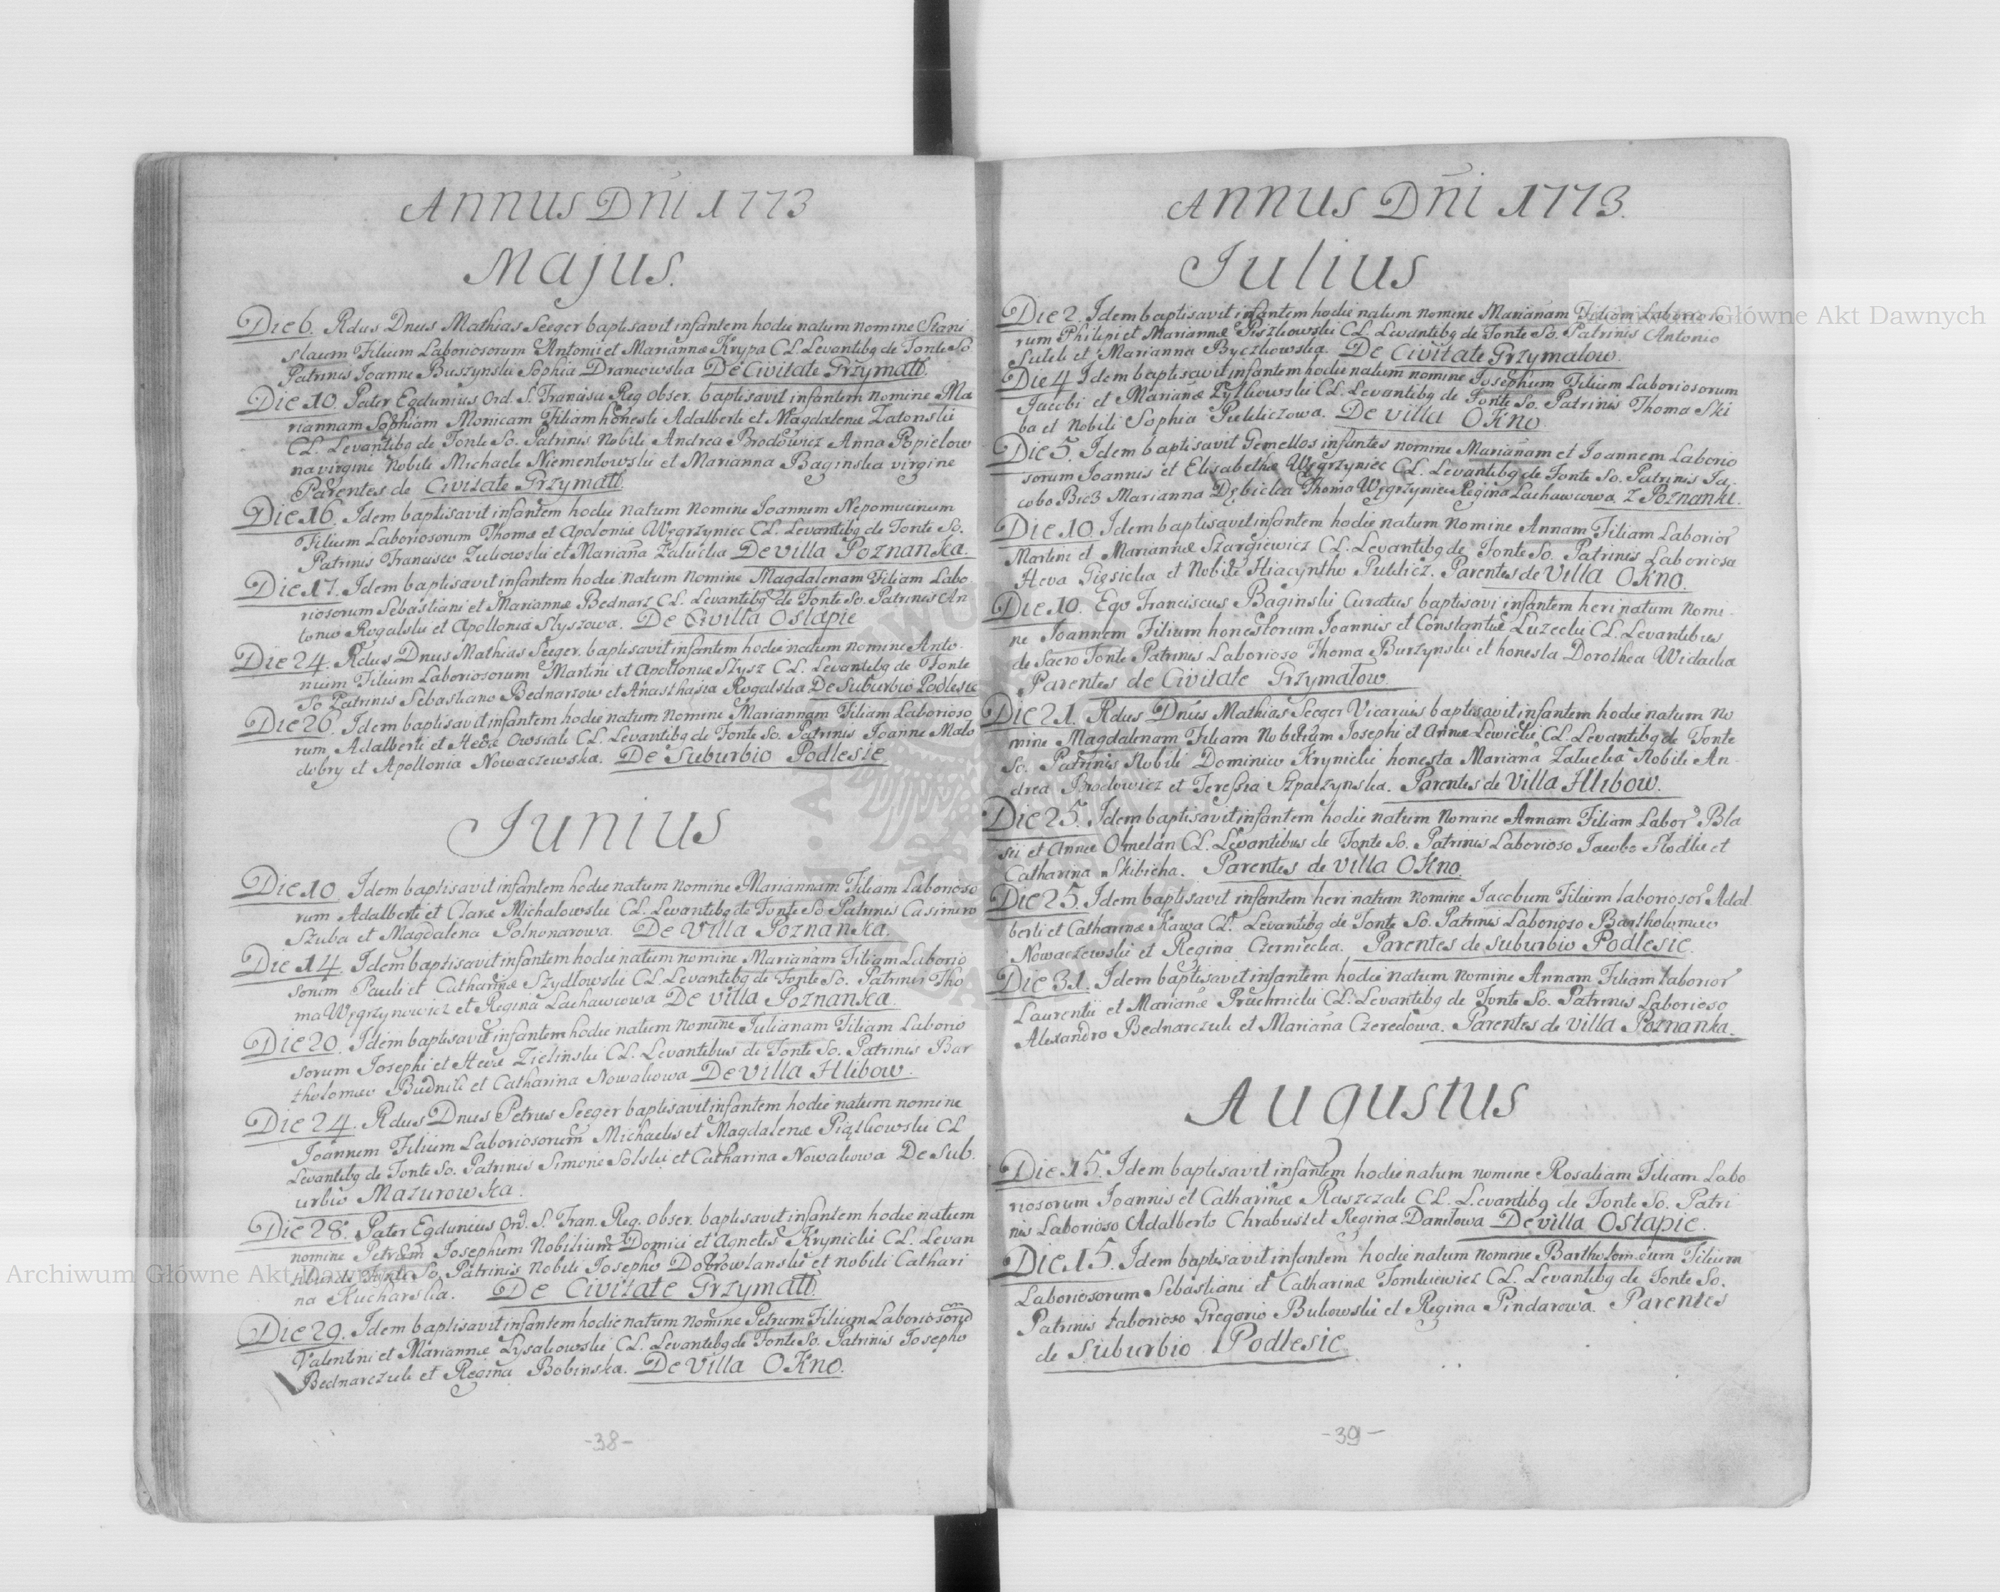 Annus Dñi 1773
Majus.
Die 6. Rdus Dnus Mathias Seeger baptisavit infantem hodie natum nomine Stani
slaum Filium Laboriosorum Antonii et Mariannæ Krypa CL. Levantibq de Fonte So.
Patrinis Joanne Buszynski Sophia De Civitate Grzymatt.
Die 10. Pater Egdunius Ord. S. Francisci Reg Obser. baptisavit infantem nomine Ma
riannam Sophiam Monicam Filiam honeste Adalberti et Magdalenæ Zatonski
CL. Levantibq de Fonte So. Patrinis Nobili Andrea Brodowicz Anna Popielow
na virgine Nobili Michaele Niementowski et Marianna Baginska virgine
Parentes de Civitate Grzymatt.
Die 16. Idem baptisavit infantem hodie natum nomine Joannem Nepomucinum
Filium Laboriosorum Thoma et Apolonie Węgrzyniec CL. Levantibq de Fonte So.
Patrinis Francisco Zukowski et Mariana Zalucka De villa Poznanka.
Die 17. Idem baptisavit infantem hodie natum nomine Magdalenam Filiam Labo
riosorum Sebastiani et Mariannæ Bednarz CL. Levantibq de Fonte So. Patrinis An
tonio Rogalski et Apollonia Slyszowa. De Civilla Ostapie
Die 24. Rdus Dnus Mathias Seeger. baptisavit infantem hodie natum nomine Anto
nium Filium Laboriosorum Martini et Apolloniæ Slysz CL. Levantibq de Fonte
So Patrinis Sebastiano Bednarzow et Anasthasia Rogalska De Suburbio Podlesie
Die 26. Idem baptisavit infantem hodie natum nomine Mariannam Filiam Laborioso
rum, Adalberti et Hevæ Owsiak CL. Levantibq de Fonte So. Patrinis Joanne Malo
dobry et Apollonia Nowaczewska. De Suburbio Podlesie
Junius
Die 10. Idem baptisavit infantem hodie natum nomine Mariannam Filiam Laborioso
rum Adalberti et Claræ Michalowski CL. Levantibq de Fonte So Patrinis Casimiro
Szuba et Magdalena Polnonarowa. De Villa Poznanka.
Die 14. Idem baptisavit infantem hodie natum nomine Marianam Filiam Laborio
sorum Pauli et Catharinæ Szydlowski CL. Levantibq de Fonte So. Patrinis Tho
ma Węgrzynowicz et Regina Lachawcowa De villa Poznanka.
Die 20. Idem baptisavit infantem hodie natum nomine Julianam Filiam Laborio
sorum Josephi et Hevæ Zielinski CL. Levantibus de Fonte So. Patrinis Bar
tholomeo Budnik et Catharina Nowakowa De villa Hlibow.
Die 24. Rdus Dnus Petrus Seeger baptisavit infantem hodie natum nomine
Joannem Filium Laboriosorum Michaelis et Magdalenæ Piątkowski CL
Levantibq de Fonte So. Patrinis Simone Solski et Catharina Nowakowa De Sub.
urbio Mazurowka.
Die 28. Pater Egdunius Ord. S. Fran. Reg. Obser. baptisavit infantem hodie natum
nomine Petrum Josephum Nobilium Domici et Agnetis Krynicki CL. Levan
tibus de Fonte So. Patrinis Nobili Josepho Dobrowlanski et nobili Cathari
na Kucharska. De Civitate Grzymatt.
Die 29. Idem baptisavit infantem hodie natum nomine Petrum Filium Laboriosorum
Valentini et Mariannæ Lysakowski CL. Levantibq de Fonte So. Patrinis Josepho
Bednarczuk et Regina Bobinska. De Villa Okno.
-38-
Annus Dñi 1773.
Julius
Die 2. Idem baptisavit infantem hodie natum nomine Marianam Filiam Laborioso
rum Philipi et Mariannæ Piszkowski CL. Levantibq de Fonte So. Patrinis Antonio
Suteli et Marianna Byczkowska. De Civitate Grzymalow.
Die 4 Idem baptisavit infantem hodie natum nomine Josephum Filium Laboriosorum
Jacobi et Marianæ Zytkowski CL. Levantibq de Fonte So. Patrinis Thoma Ski
ba et Nobili Sophia Pukliczowa. De villa Okno
Die 5. Idem baptisavit Gemellos infantes nomine Marianam et Joannem Laborio
sorum Joannis et Elisabethæ Węgrzyniec CL. Levantibq de Fonte So. Patrinis Ja
cobo Bieß Marianna Dębicka Thoma Węgrzyniec Regina Lachawcowa. z Poznanki.
Die 10. Idem baptisavit infantem hodie natum nomine Annam Filiam Laborior
Martini et Mariannæ Szargiewicz CL. Levantibq de Fonte So. Patrinis Laboriosa
Heva Gęsicka et Nobile Hiacyntho Puklicz. Parentes de Villa Okno.
Die 10. Ego Franciscus Baginski Curatus baptisavi infantem heri natum nomi-
ne Joannem Filium honestorum Joannis et Constantiæ Luzecki CL. Levantibus
de Sacro Fonte Patrinis Laborioso Thoma Burzynski et honesta Dorothea Widacka
Parentes de Civitate Grzymalow.
Die 21. Rdus Dnus Mathias Seeger Vicarius baptisavit infantem hodie natum no
mine Magdalenam Filiam Nobilium Josephi et Annæ Lewicki CL. Levantibq de Fonte
So. Patrinis Nobili Dominico Krynicki honesta Mariana Zalucka Nobili An-
drea Brodowicz et Teressia Szpaczynska. Parentes de Villa Hlibow.
Die 25. Idem baptisavit infantem hodie natum nomine Annam Filiam Labor Bla
sii et Annæ Omelan CL. Levantibus de Fonte So. Patrinis Laborioso Jacobo Slodki et
Catharina Skibicha. Parentes de villa Okno.
Die 25. Idem baptisavit infantem heri natum nomine Jacobum Filium laborior Adal
berti et Catharinæ Kawa CL. Levantibq de Fonte So. Patrinis Laborioso Bartholomeo
Nowaczewski et Regina Czerniecka. Parentes de suburbio Podlesie.
Die 31. Idem baptisavit infantem hodie natum nomine Annam Filiam laborior
Laurentii et Marianæ Pruchnicki CL. Levantibq de Fonte So. Patrinis Laborioso
Alexandro Bednarczuk et Mariana Czeredowa. Parentes de Villa Poznanka.
Augustus
Die 15. Idem baptisavit infantem hodie natum nomine Rosaliam Filiam Labo
riosorum Joannis et Catharinæ Raszczak CL. Levantibq de Fonte So. Patri
nis Laborioso Adalberto Chrabust et Regina Danilowa De villa Ostapie.
Die 15. Idem baptisavit infantem hodie natum nomine Bartholomeum Filium
Laboriosorum Sebastiani et Catharinæ Tomkiewicz CL. Levantibq de Fonte So.
Patrinis Laborioso Gregorio Bukowski et Regina Pindarowa. Parentes
de Suburbio Podlesie.
-39-
Archiwum Główne Akt Dawnych
Archiwum Główne Akt Dawnych